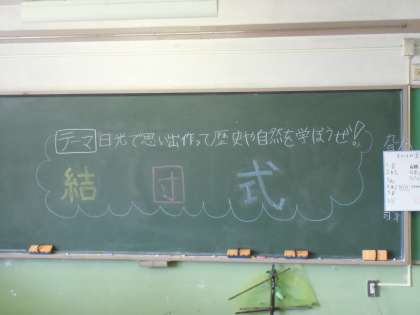 テーマ 日光で思い出作って歴史や自然を学ぼうぜ!!
結団式